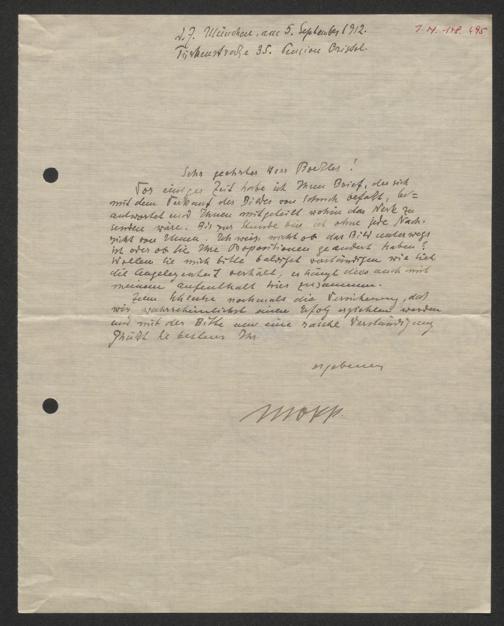 z. Z. München, am 5. September 1912.
Türkenstraße 35. Pension Bristol.
Sehr geehrter Herr Roeßler!
Vor einiger Zeit habe ich Ihren Brief, der sich
mit dem Verkauf des Bildes von Schuch befaßt, be-
antwortet und Ihnen mitgeteilt wohin das Werk zu
senden wäre. Bis zur Stunde bin ich ohne jede Nach-
richt von Ihnen. Ich weiß nicht ob das Bild unterwegs
ist oder ob Sie Ihre Propositionen geändert haben?
Wollen Sie mich bitte baldigst verständigen wie sich
die Angelegenheit verhält, es hängt dies auch mit
meinem Aufenthalt hier zusammen.
Zum Schlusse nochmals die Versicherung, daß
wir wahrscheinlichst einen Erfolg erzielen werden
und mit der Bitte um eine rasche Verständigung
grüßt Sie bestens Ihr
ergebener
Mopp.